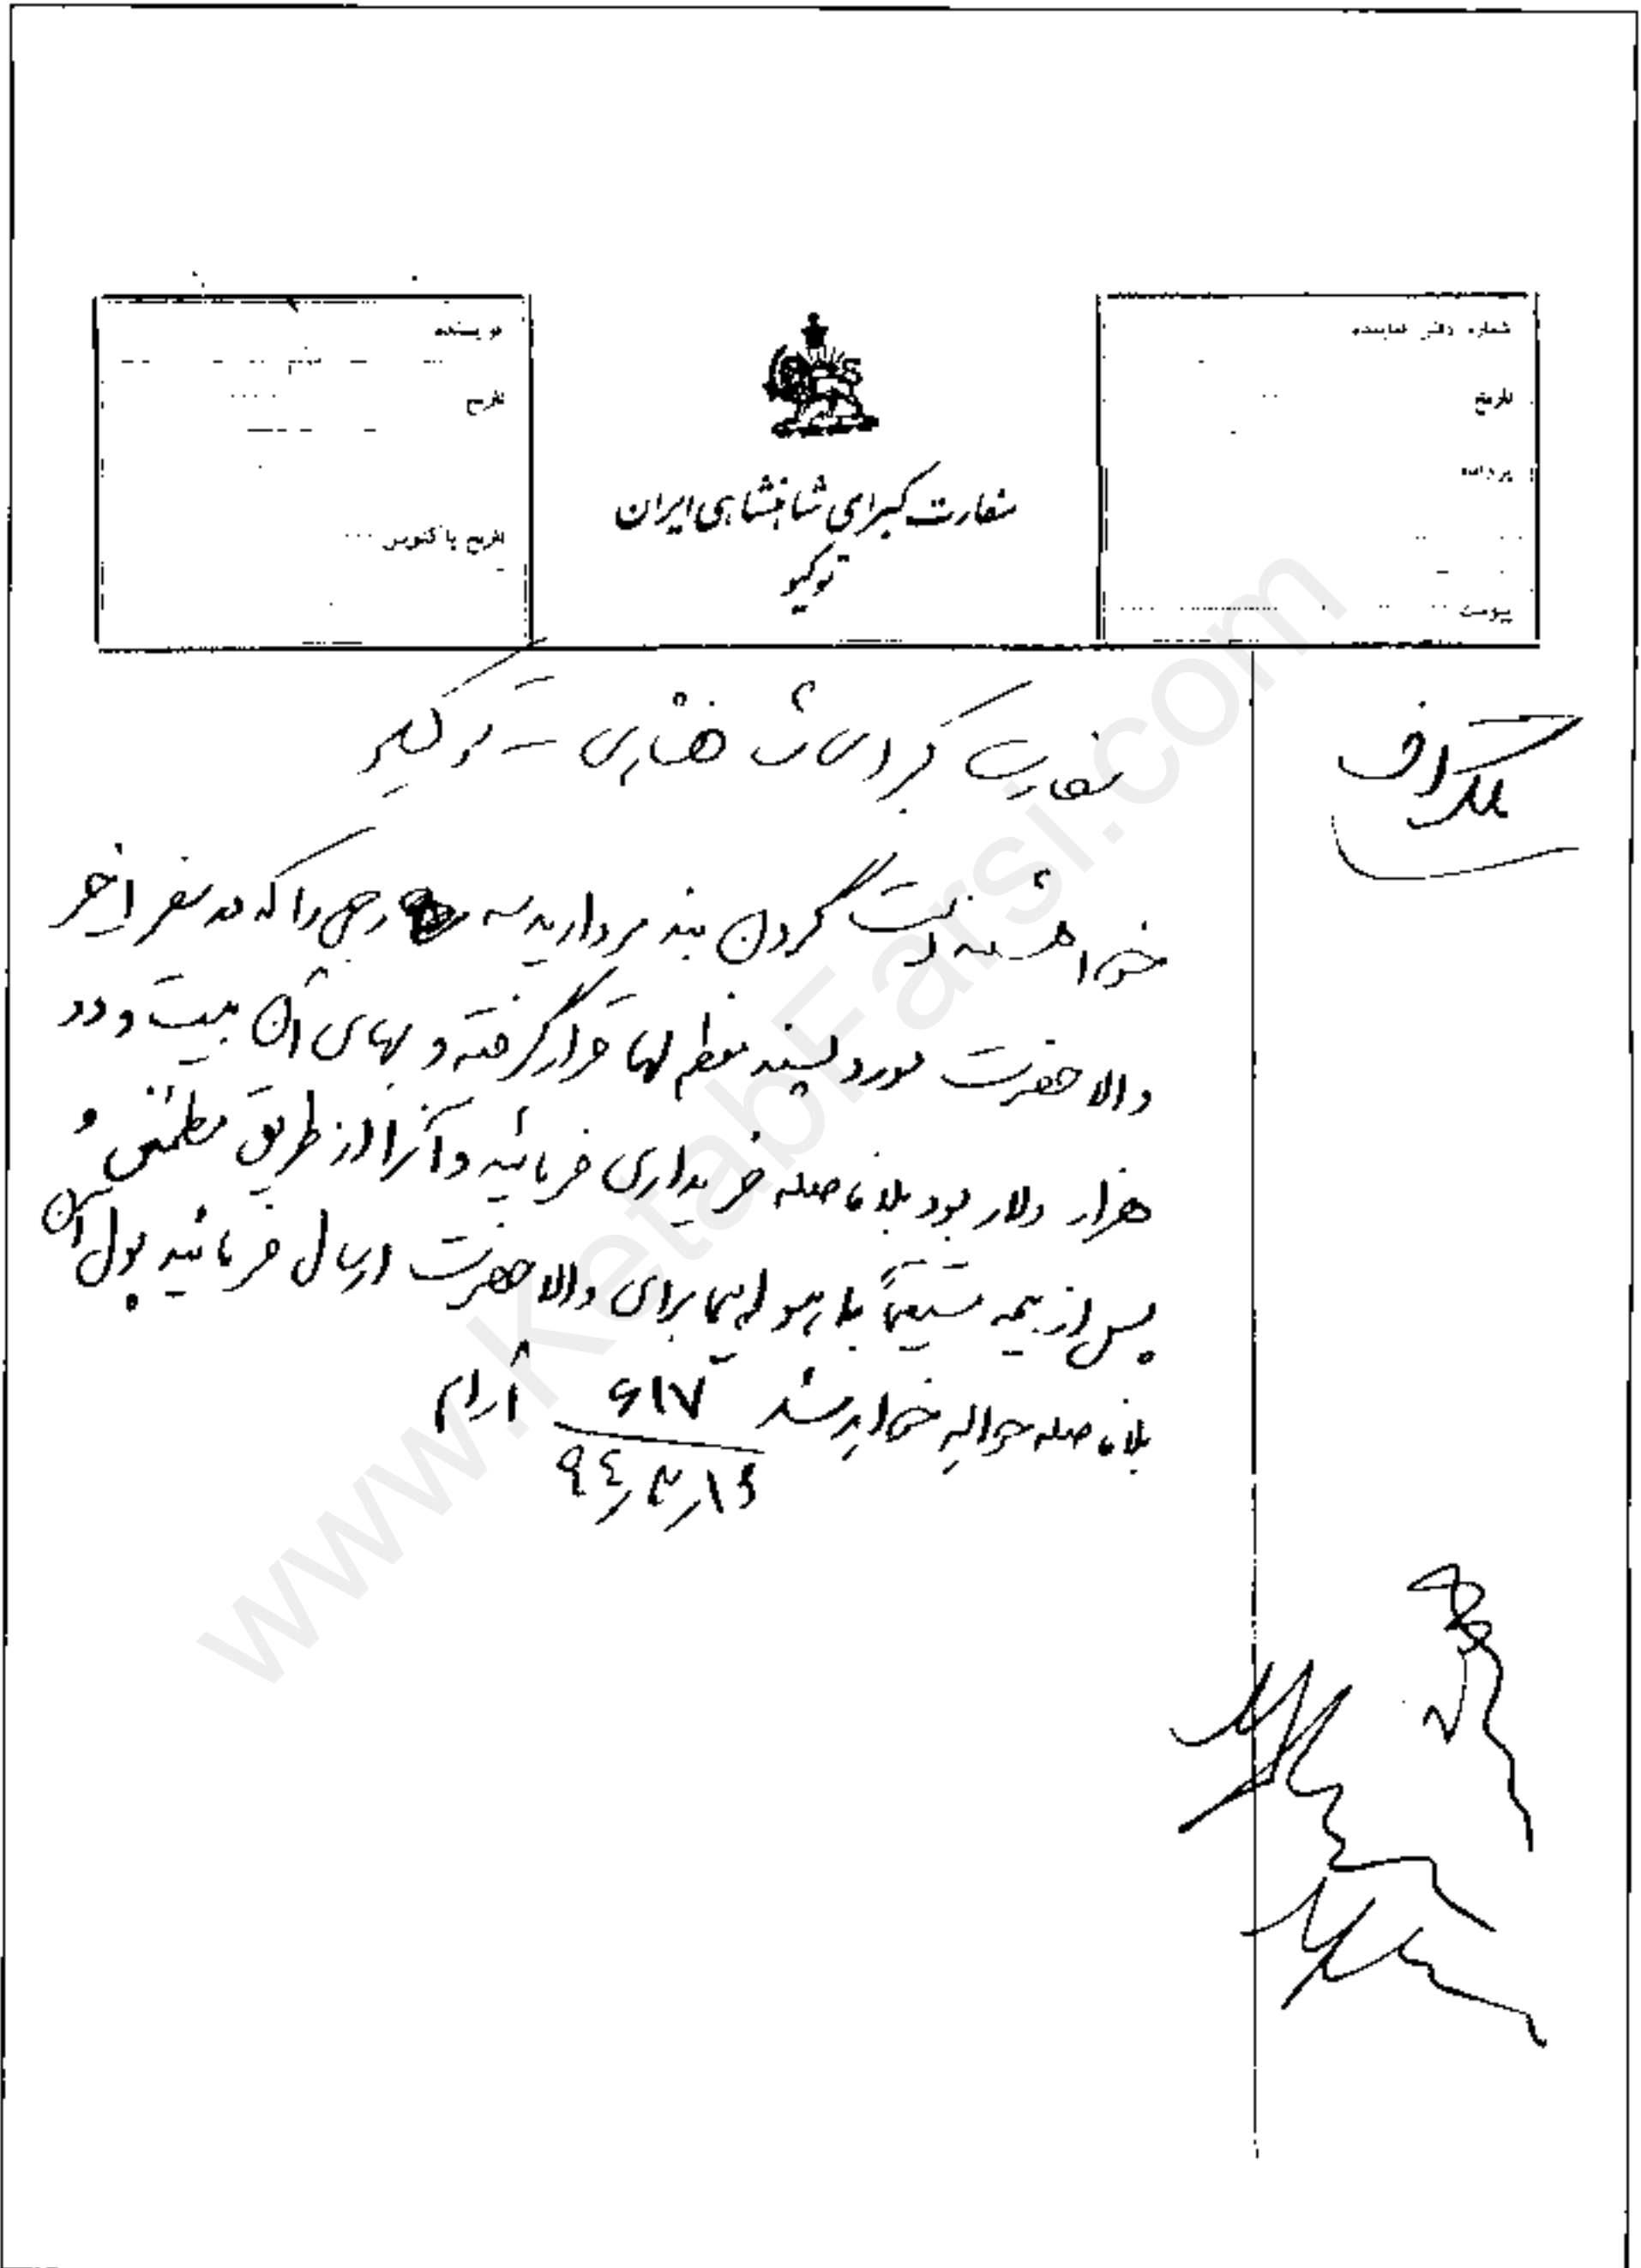 شماره دفتر نماینده
تاریخ
پرونده
پیوست
سفارت کبرای شاهنشاهی ایران
توکیو
نویسنده
تاریخ
تاریخ پاکنویس
تلگراف
سفارت کبرای شاهنشاهی - توکیو
خواهشمند است گردن بند مروارید سه رجی را که در سفر اخیر
والاحضرت مورد پسند معظم لها قرار گرفته و بهای آن بیست و دو
هزار دلار بود بلافاصله خریداری فرمائید و آنرا از طریق مطمئن و
پس از بیمه مستقیماً با هواپیما برای والاحضرت ارسال فرمائید پول آن
بلافاصله حواله خواهد شد ۶۱۷ آرام
۹٤٫۳٫۱۶
www.KetabFarsi.com